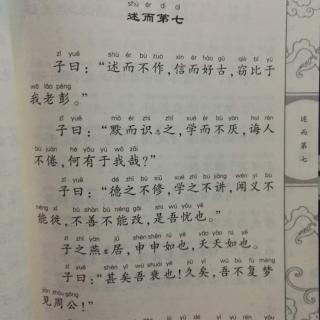 shù ér dì qī
述而第七
zǐ yuē shù ér bù zuò xìn ér hào gǔ qiè bǐ yú
子曰：“述而不作，信而好古，窃比于
wǒ lǎo péng
我老彭。”
zǐ yuē mò ér zhì zhī xué ér bù yàn huì rén
子曰：“默而识之，学而不厌，诲人
bù juàn hé yǒu yú wǒ zāi
不倦，何有于我哉？”
zǐ yuē dé zhī bù xiū xué zhī bù jiǎng wén yì bù
子曰：“德之不修，学之不讲，闻义不
néng xǐ bù shàn bù néng gǎi shì wú yōu yě
能徙，不善不能改，是吾忧也。”
zǐ zhī yàn jū shēn shēn rú yě yāo yāo rú yě
子之燕居，申申如也，夭夭如也。
zǐ yuē shèn yǐ wú shuāi yě jiǔ yǐ wú bù fù mèng
子曰：“甚矣吾衰也！久矣，吾不复梦
jiàn zhōu gōng
见周公！”
述而第七